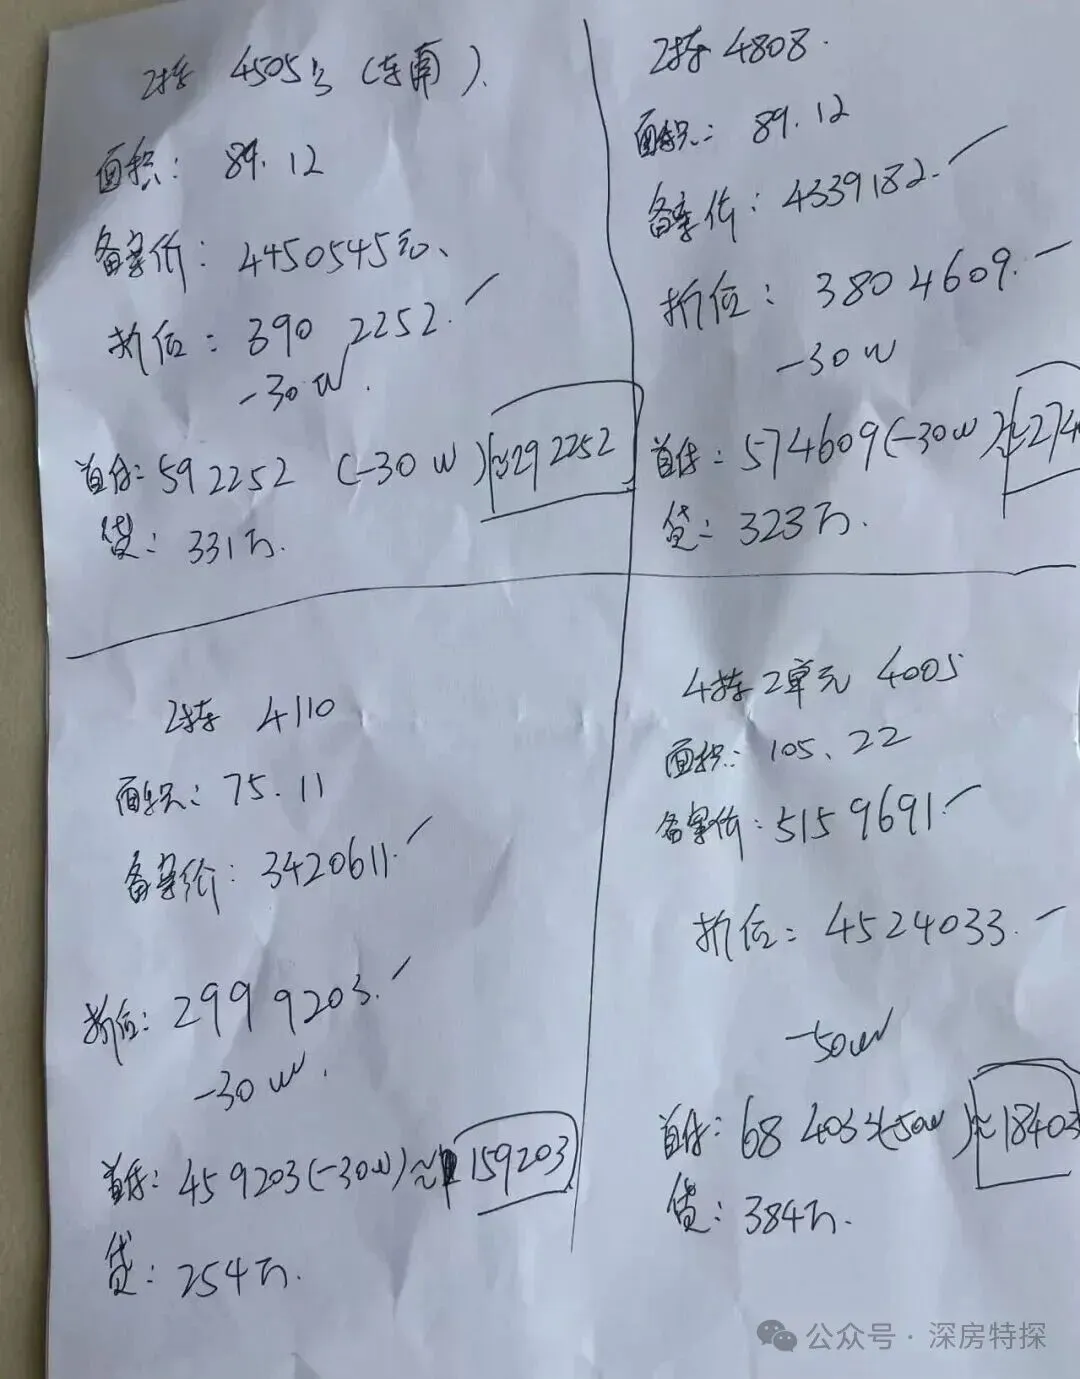 2栋 4505号 (东南).
面积: 89.12
备案价: 4450545元、
折后: 390 2252.
-30W.
首付: 592252 (-30W)≈292252
贷: 331万.
2栋 4808.
面积: 89.12
备案价: 4339182.
折后: 3804609.
-30W
首付: 574609(-30W)≈274
贷: 323万.
2栋 4110
面积: 75.11
备案价: 3420611.
折后: 2999203.
-30W.
首付: 459203(-30W)≈159203
贷: 254万.
4栋2单元 4005
面积: 105.22
备案价: 5159691
折后: 4524033.
-50W
首付: 684033(-50W)≈18403
贷: 384万.
公众号·深房特探